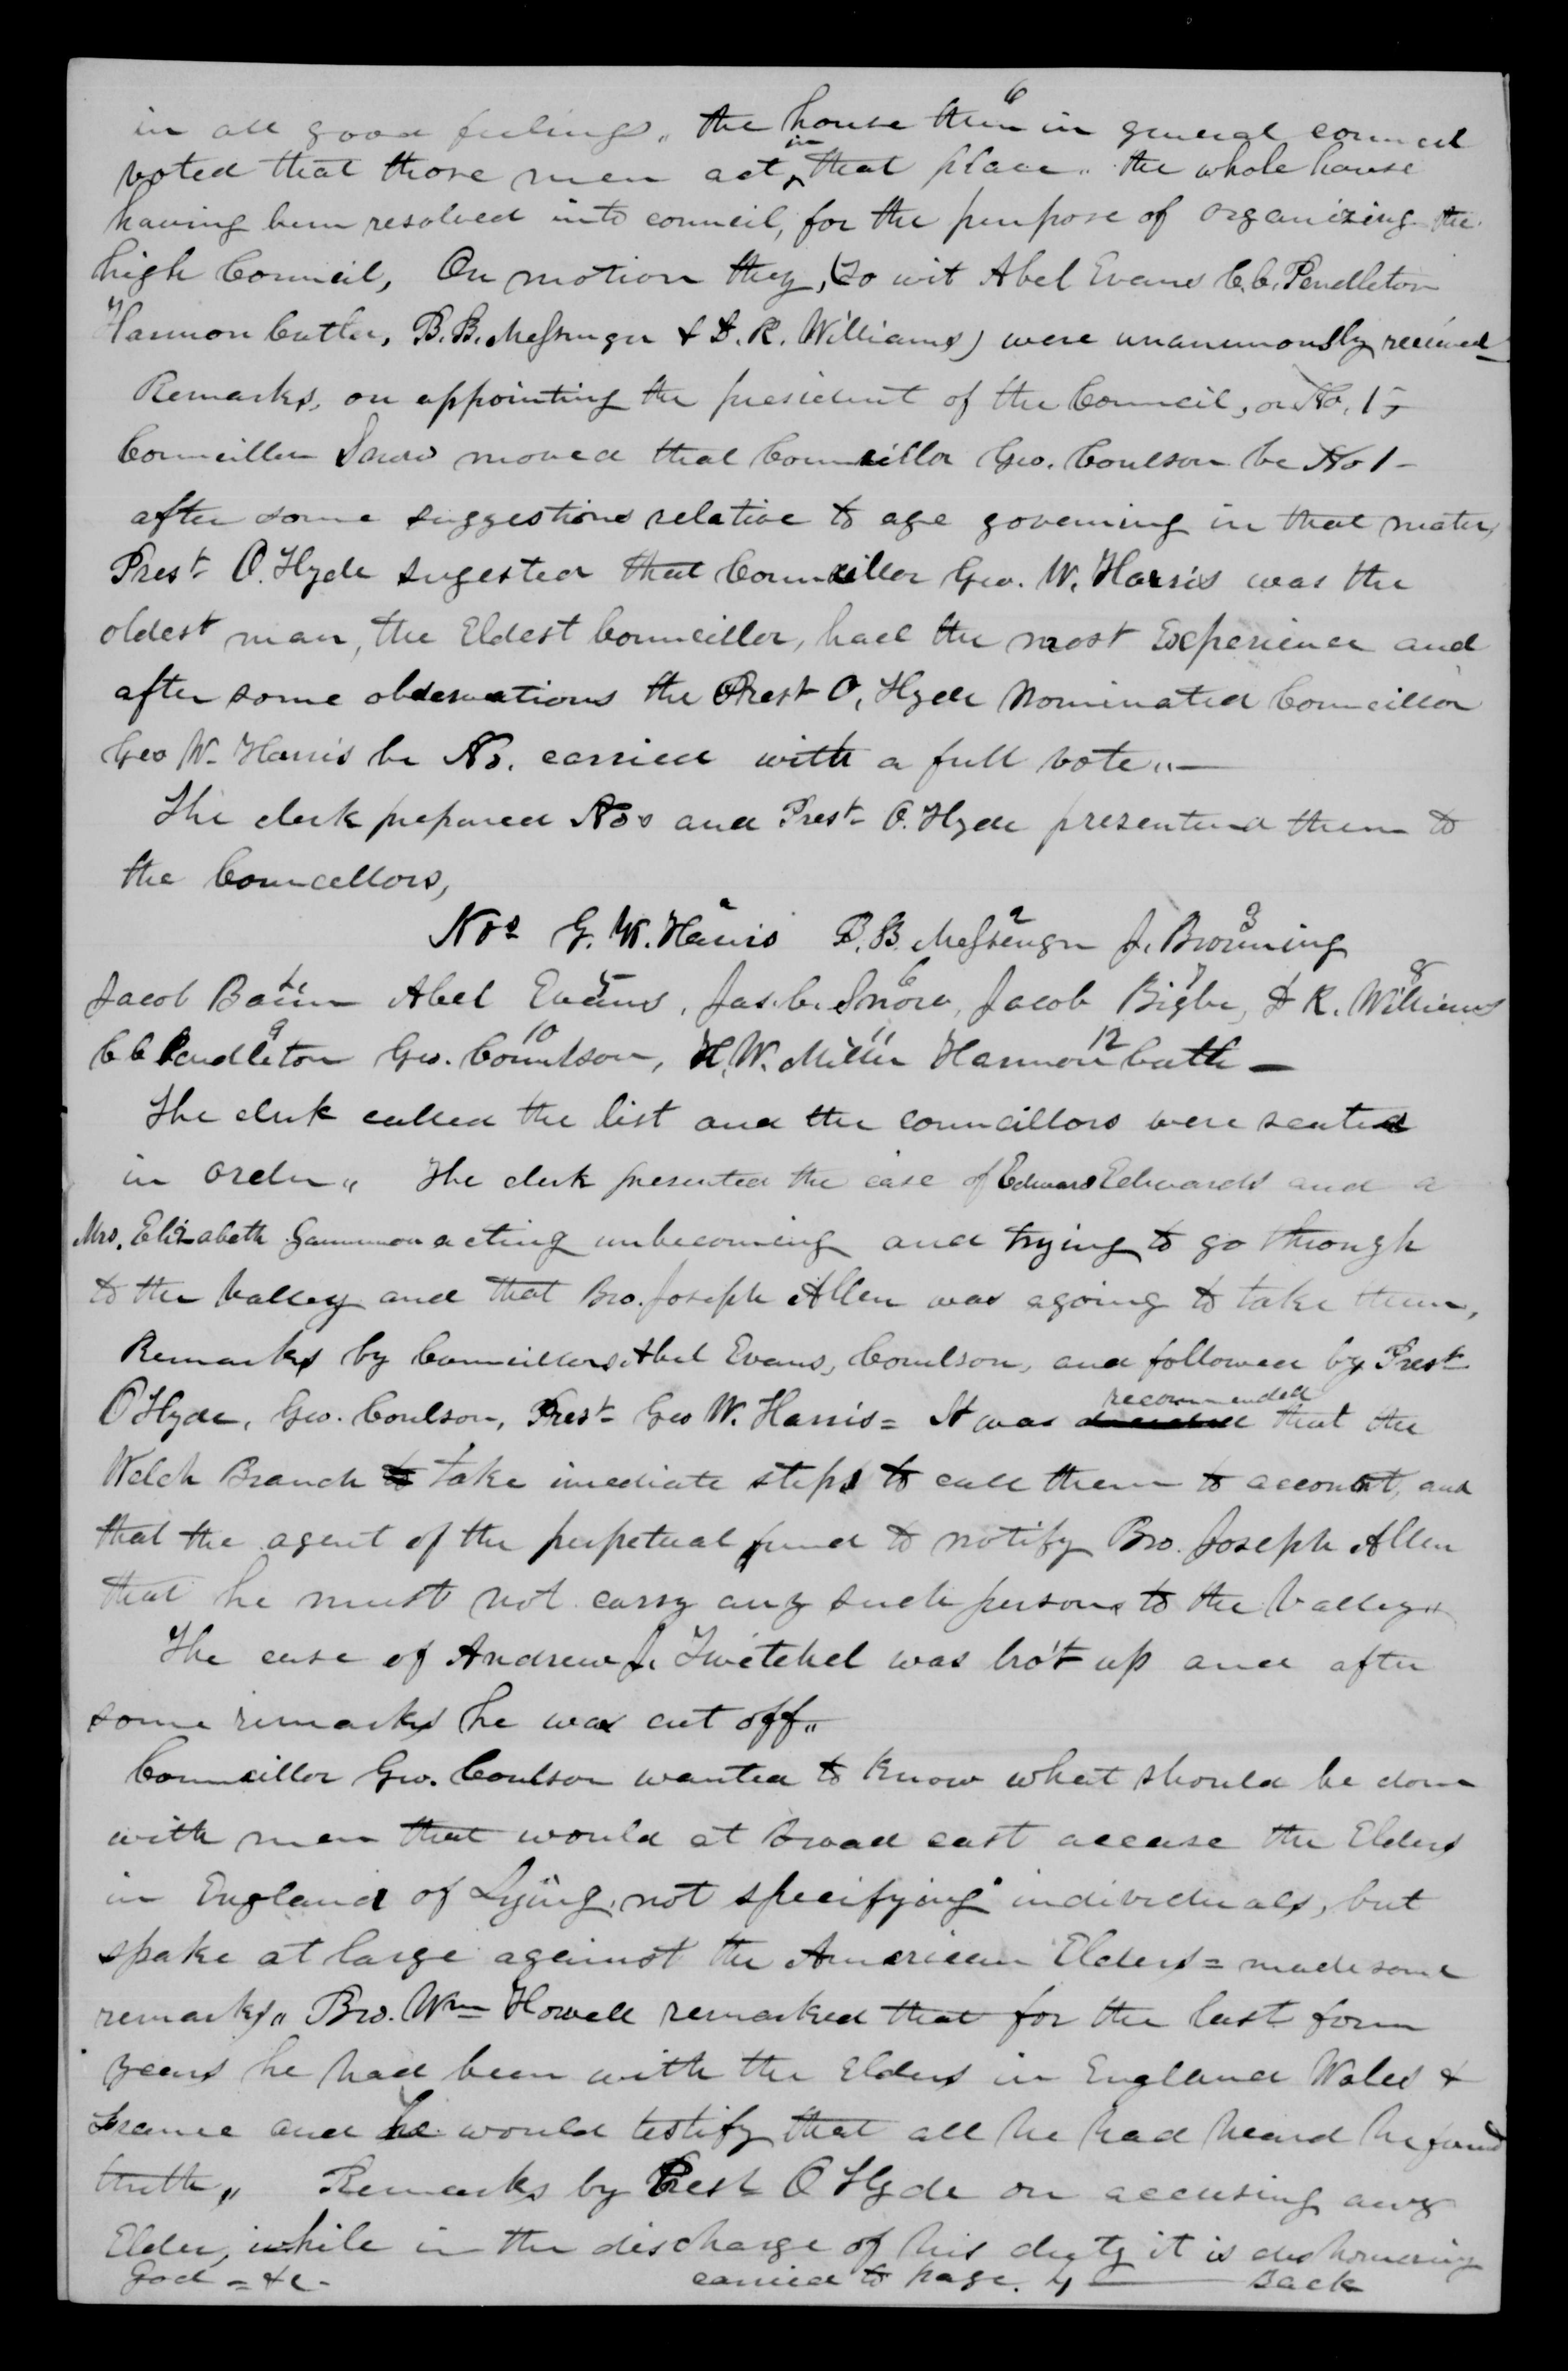 6
in all good feelings,, the house then in general council
voted that those men act in that place ,, the whole house
having been resolved into council, for the purpose of organizing the
high Council, On motion they, (to wit Abel Evans C.C. Pendleton
Harmon Cutler, B.B. Messenger & D. R. Williams) were unanimously received
Remarks, on appointing the president of the Council, or No. 1,-
Councillor Snow moved that Councillor Geo. Coulson be No 1-
after some suggestions relative to age governing in that mater,
Prest O. Hyde sugested that Councillor Geo. W. Harris was the
oldest man, the Eldest Councillor, had the most Experience and
after some observations the Prest O, Hyde Nominated Councillor
Geo W. Harris be No. carried with a full vote,,—
The clerk prepared Nos and Prest O. Hyde presentend them to
the Councellors,
Nos G. W. Harris B.B. Messenger 2 J. Browning 3
Jacob Bailm Abel Evans 5, Jas. C. Snow 6, Jacob Bigbe 7, D R. Williams 8
C C Pendleton 9 Geo. Counlson 10, H. W. Miller 11 Harmon 12 Cutle —
The clerk called the list and the councillors were seated
in order ,, The clerk presented the case of Edward Edwards and a
Mrs. Elizabeth Gammon acting unbecoming and trying to go through
to the Valley and that Bro. Joseph Allen was agoing to take them,
Remarks by Councillors Abel Evans, Coulson, and followed by Prest
O Hyde, Geo. Coulson, Prest Geo W. Harris = It was recommended that the
Welch Branch to take imediate steps to call them to account, and
that the agent of the perpetual fund to notify Bro. Joseph Allen
that he must not carry any such persons to the Valley ,,
The case of Andrew J. Twitchel was bro't up and after
some remarks he was cut off,,
Councillor Geo. Coulson wanted to know what should be done
with men that would at broad cast accuse the Elders
in England of Lying, not specifying individuals, but
spake at large against the American Elders = made some
remarks,, Bro. Wm Howell remarked that for the last four
years he had been with the Elders in England Wales &
France and he would testify that all he had heard he found
truth,, Remarks by Prest O Hyde on accusing any
Elder, while in the discharge of his duty it is dishonering
God = &c - carried to page. 4 —— Back